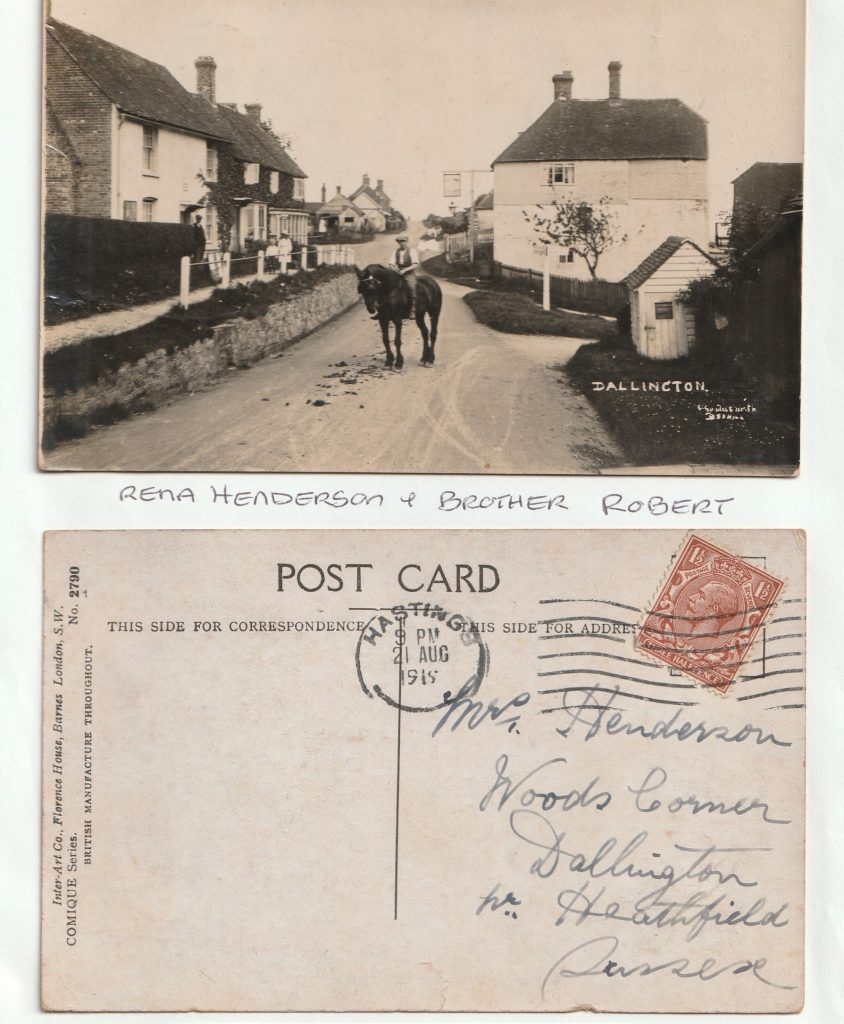 DALLINGTON.
BEXHILL
RENA HENDERSON & BROTHER ROBERT
POST CARD
THIS SIDE FOR CORRESPONDENCE
THIS SIDE FOR ADDRES
HASTINGS
9 PM
21 AUG
Inter-Art Co., Florence House, Barnes London, S.W.
COMIQUE Series. No. 2790
BRITISH MANUFACTURE THROUGHOUT.
1½ 1½
POSTAGE
THREE HALFPENCE
Mrs. Henderson
Woods Corner
Dallington
nr. Heathfield
Sussex